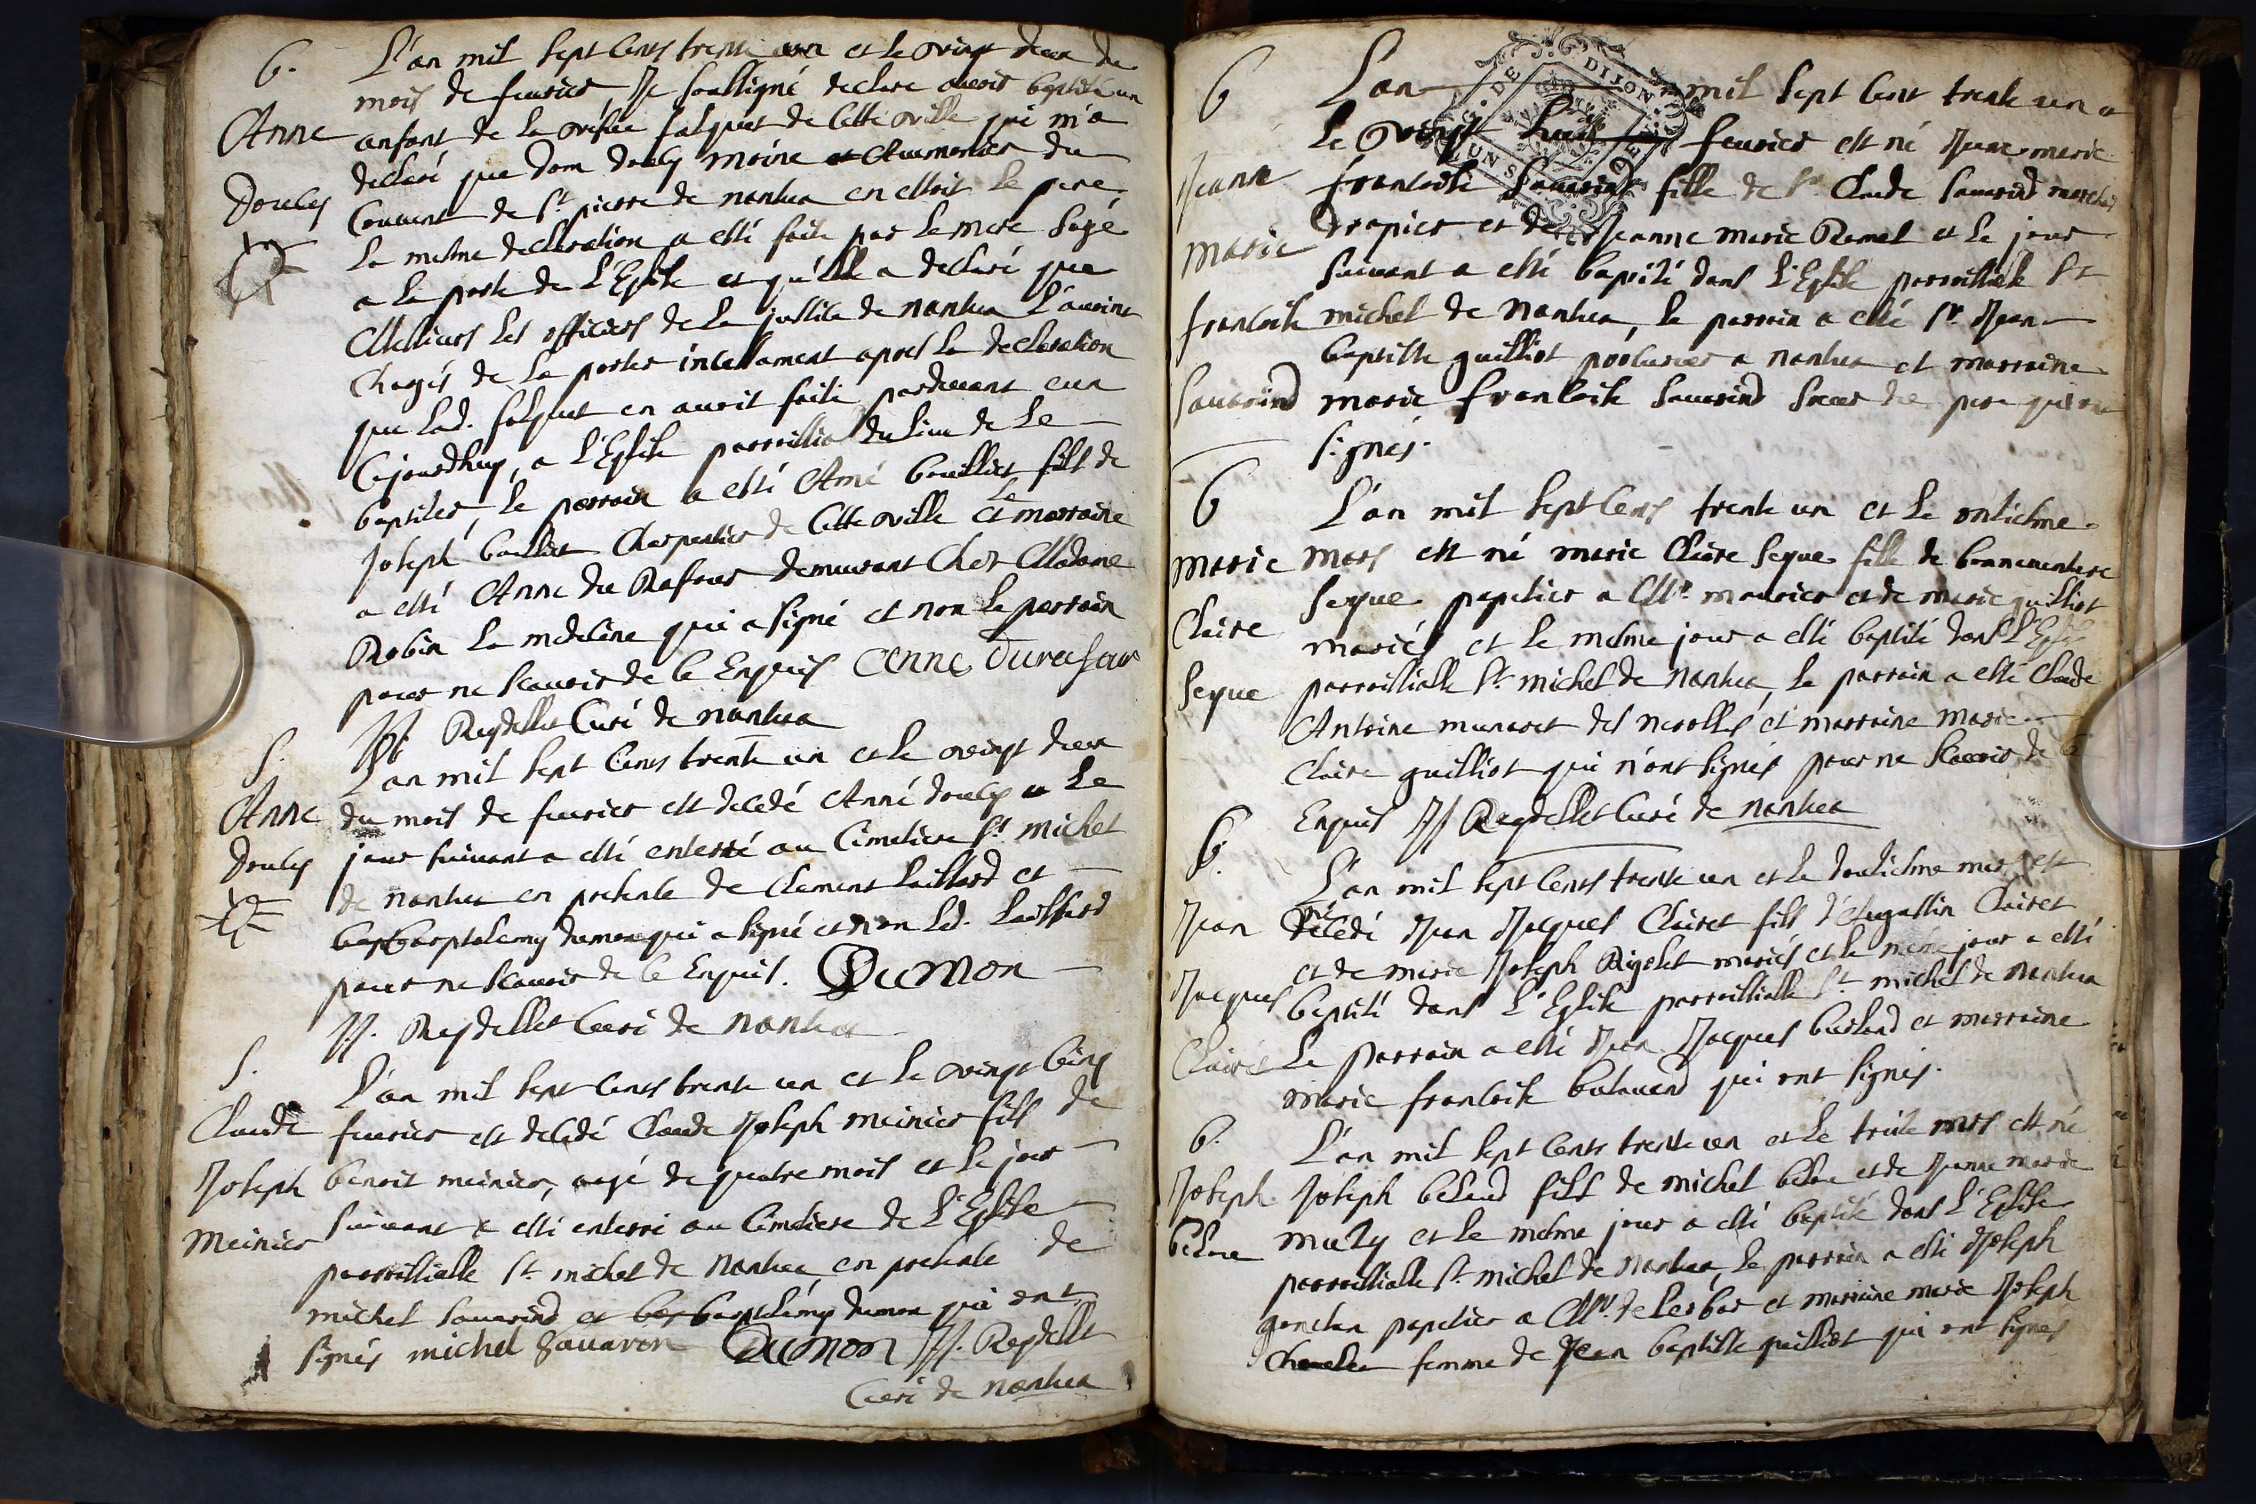 b.
Anne
Douly
L'an mil sept cents trente un et le vingt deux du
mois de feuvrier Je soussigné declare avoir baptisé un
anfant de la falquet de cette ville qui m'a
declaré que dom douly moine et Aumonier du
Couvent de St pierre de nantua en estoit le pere
la mesme declaration a esté faite par la mere sage
a la porte de L'Eglise et qu'elle a declaré que
Messieurs les officiers de la justice de nantua L'avoint
chagés de la porter incessament apres la declaration
que lad. falquet en avoit faite pardevant eux
cejourdhuy, a L'Eglise parroissial du lieu de le
baptiser, le parrain a esté Amé bouillier fils de
Joseph bouillier Charpentier de cette ville et la marraine
a esté Anne du Rafour demeurant chez Madame
Robin la medecine qui a signé et non le parrain
pour ne scavoir de ce Enquis Anne Durafour
JJ Reydellet Curé de nantua
S.
Anne
Douly
L'an mil sept cents trente un et le vingt deux
du mois de feuvrier est decedé Anne douly et le
jour suivant a esté enterré au Cimetiere St michel
de nantua en presence de Clement Laissard et
barptolemy dumon qui a signé et non led. Laissard
pour ne scavoir de ce Enquis. Dumon
JJ. Reydellet Curé de nantua
S.
Claude
Joseph
Meinier
L'an mil sept cents trente un et le vingt cinq
feuvrier est decedé Claude Joseph meinier fils de
benoit meinier, aagé de quatre mois et le jour
suivant a esté enterré au Cimetiere de L'Eglise
parroissialle St michel de Nantua en presence de
michel sauvarind et barptelemy dumon qui ont
signés michel Savarin Dumon JJ. Reydellet
Curé de nantua
b
Jeanne
Marie
francoise
Sauvarind
L'an mil sept cent trente un et
le vingt huit feuvrier est né Jeane marie
francoise Sauvarind fille de Sr Claude Sauvarind marchand
drapier et de Jeanne Marie Ramel et le jour
suivant a esté baptisé dans L'Eglise parroissialle St
michel de Nantua, le parrain a esté Sr Jean
baptiste guilliot procureur a nantua et marraine
marie francoise Sauvarind soeur du pere qui ont
signés.
b
Marie
Claire
Seque
L'an mil sept cents trente un et le onziesme
Mars est né marie Claire Seque fille de bonnaventure
Seque papetier a Mr maurier et de marie guilliot
mariés et le mesme jour a esté baptisé dans L'Eglise
parroissialle St michel de Nantua, le parrain a esté Claude
Antoine munaret des nerolles et marraine Marie
Claire guilliot qui n'ont signés pour ne scavoir de ce
Enquis JJ Reydellet Curé de nantua
b.
Jean
Jacques
Clairet
L'an mil sept cents trente un et le douziesme mars est
né
decedé Jean Jacques Clairet fils d'Augustin Clairet
et de marie Joseph Rigolet mariés et le méme jour a esté
baptisé dans L'Eglise parroissialle St michel de Nantua
Le parrain a esté Jean Jacques et marraine
marie francoise qui ont signés.
b.
Joseph
L'an mil sept cents trente un et le treize mars est né
Joseph fils de michel et de Jeanne marie
et le mesme jour a esté baptisé dans L'Eglise
parroissialle St michel de Nantua, le parrain a esté Joseph
papetier a Mr et marraine marie Joseph
femme de Jean baptiste guilliot qui ont signés
G. DE DIJON